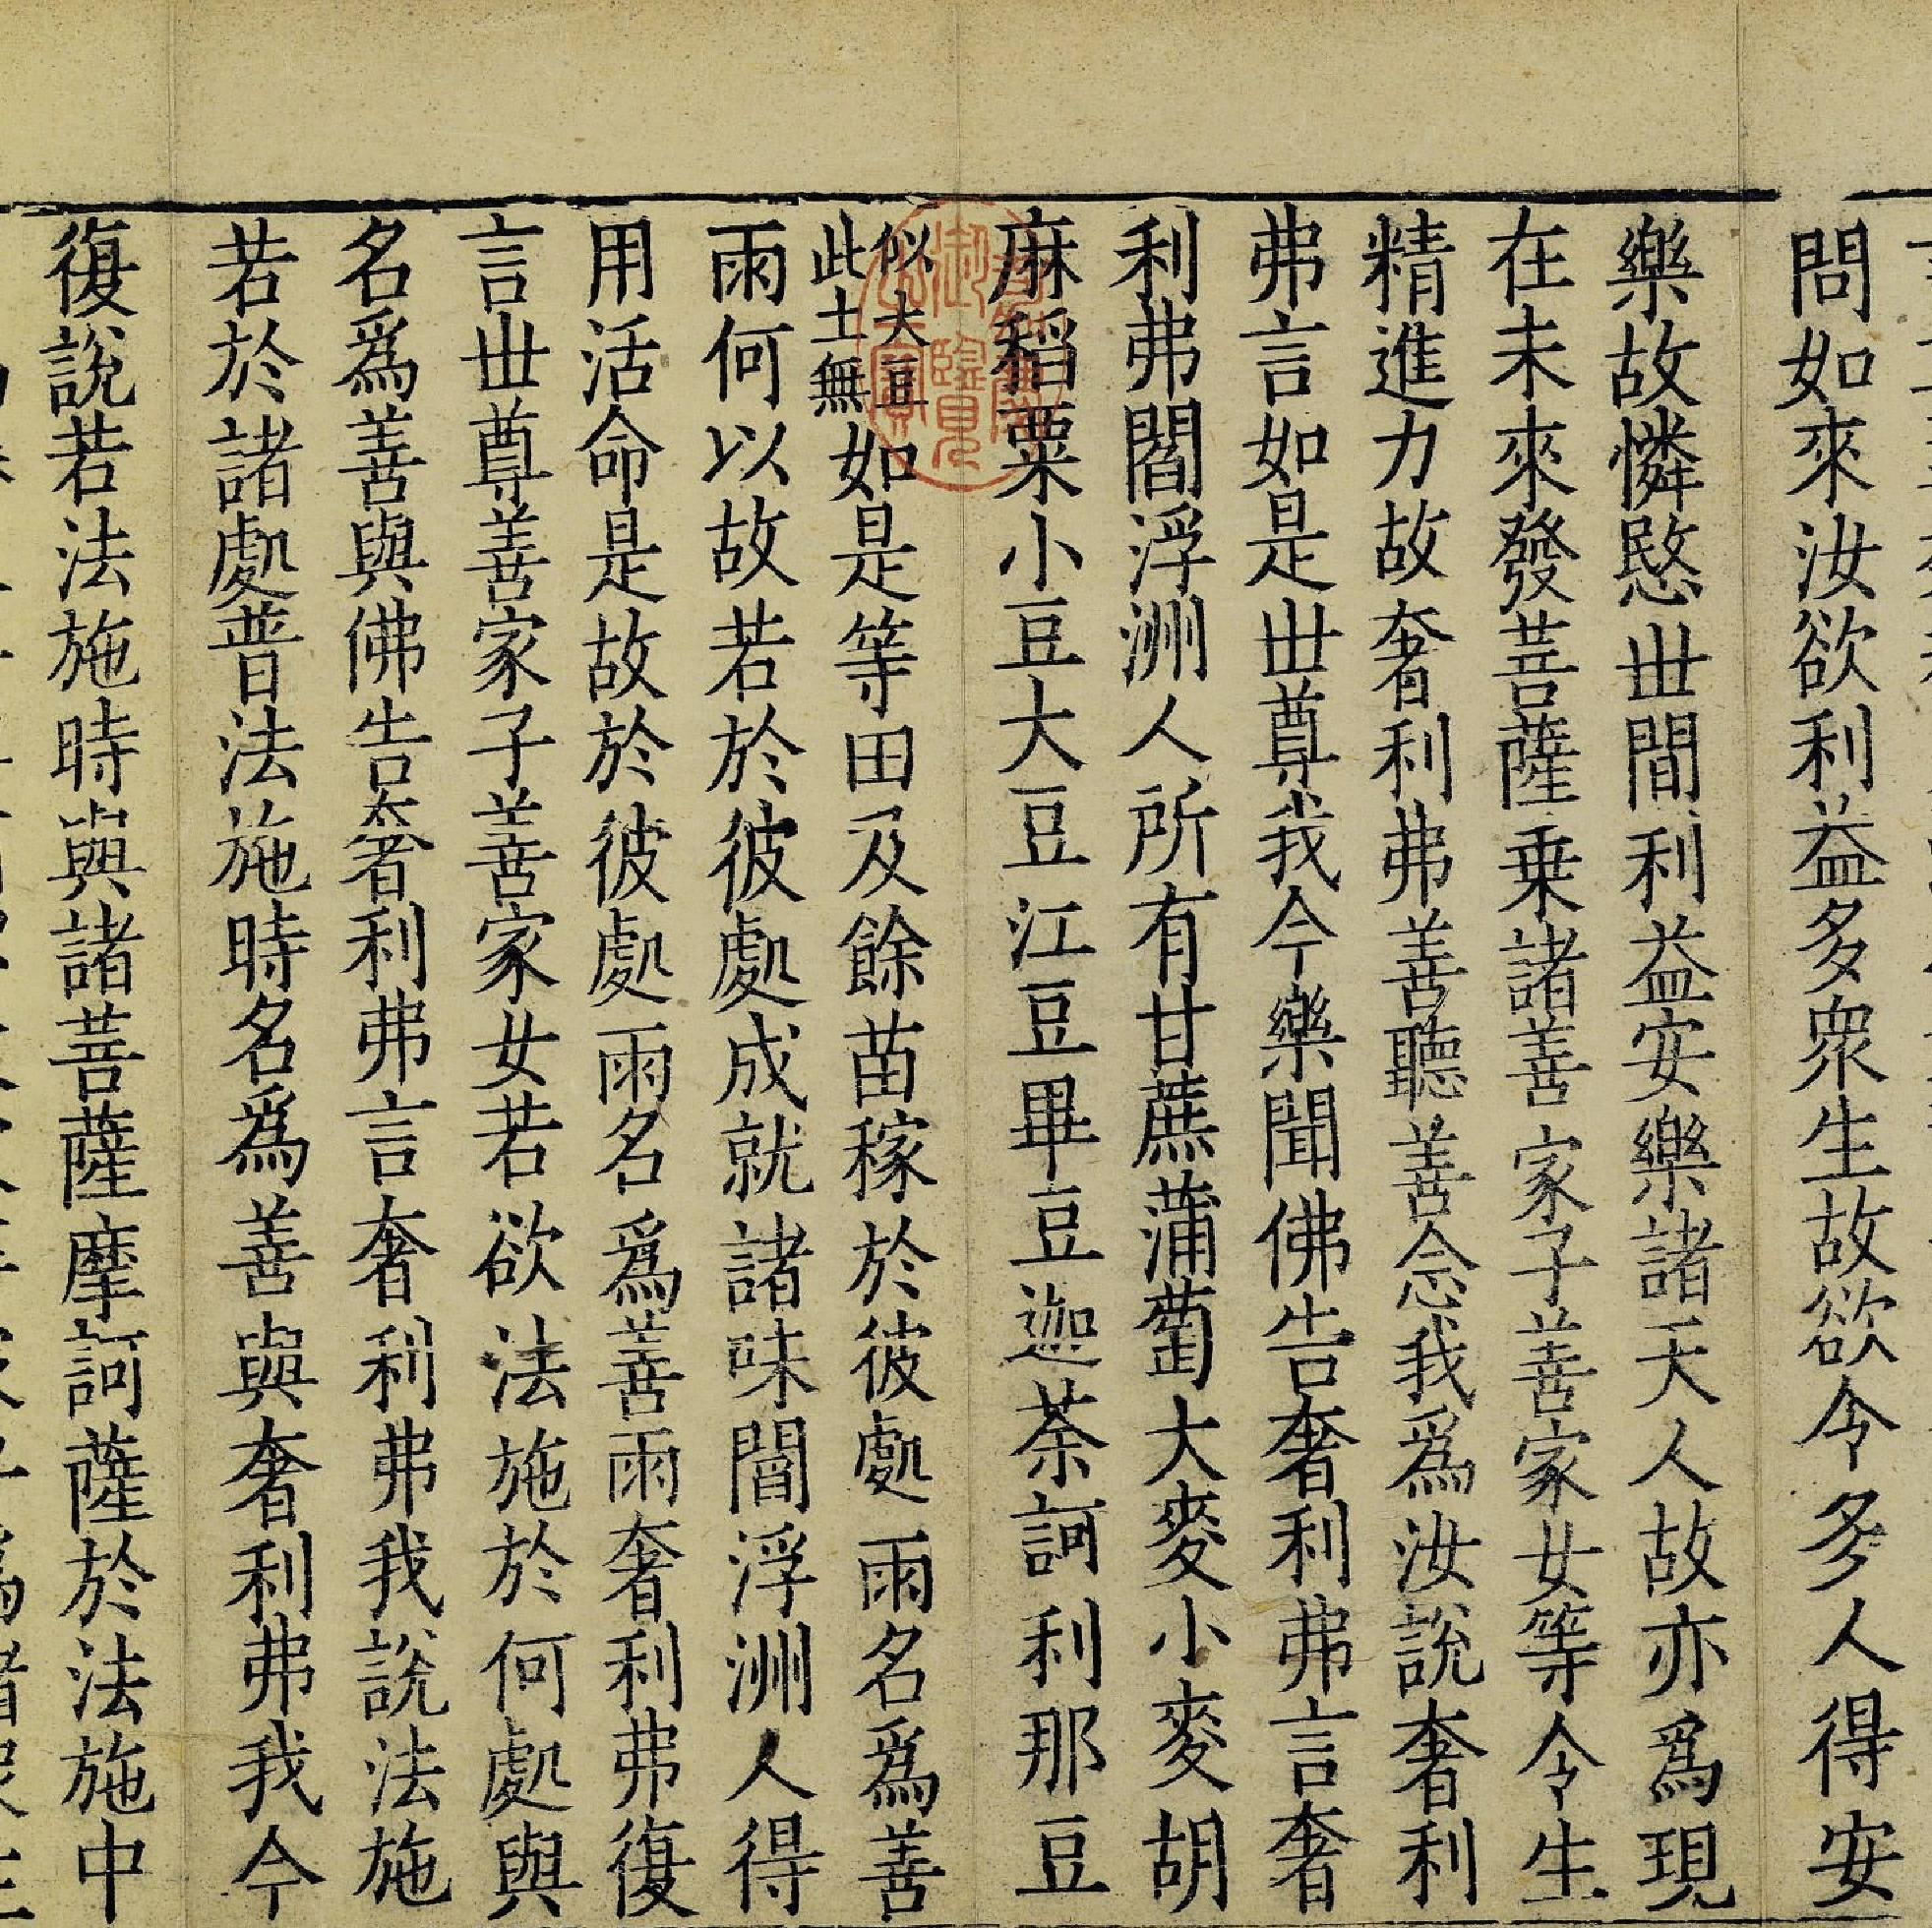 問如來汝欲利益多衆生故欲令多人得安
樂故憐愍丗間利益安樂諸天人故亦爲現
在未來發菩薩乗諸善家子善家女等令生
精進力故奢利弗善聽善念我爲汝說奢利
弗言如是丗尊我今樂聞佛告奢利弗言奢
利弗閻浮洲人所有甘蔗蒲萄大麥小麥胡
麻稻粟小豆大豆江豆畢豆迦荼訶利那豆
似大豆
此土無
如是等田及餘苗稼於彼處雨名爲善
雨何以故若於彼處成就諸味閻浮洲人得
用活命是故於彼處雨名爲善雨奢利弗復
言丗尊善家子善家女若欲法施於何處與
名爲善與佛告奢利弗言奢利弗我說法施
若於諸處普法施時名爲善與奢利弗我今
復說若法施時與諸菩薩摩訶薩於法施中